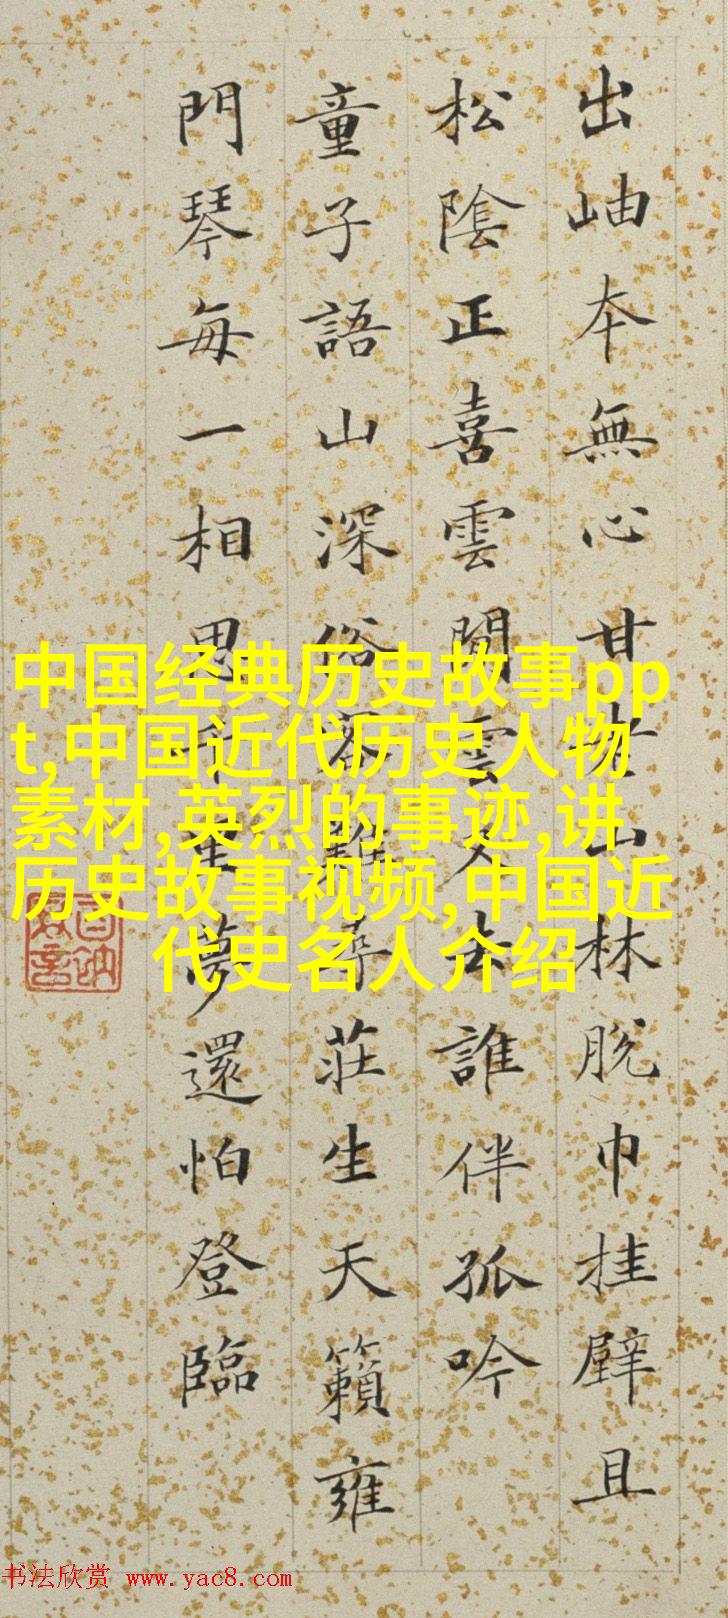 出岫本無心甘老山林脫巾挂壁且
松陰正喜雲閒雲又去誰伴孤吟
童子語山深俗客難尋莊生天籟雍
門琴每一相思千里夢還怕登臨
中国经典历史故事pp
t,中国近代历史人物
素材,英烈的事迹,讲
历史故事视频,中国近
代史名人介绍
书法欣赏 www.yac8.com